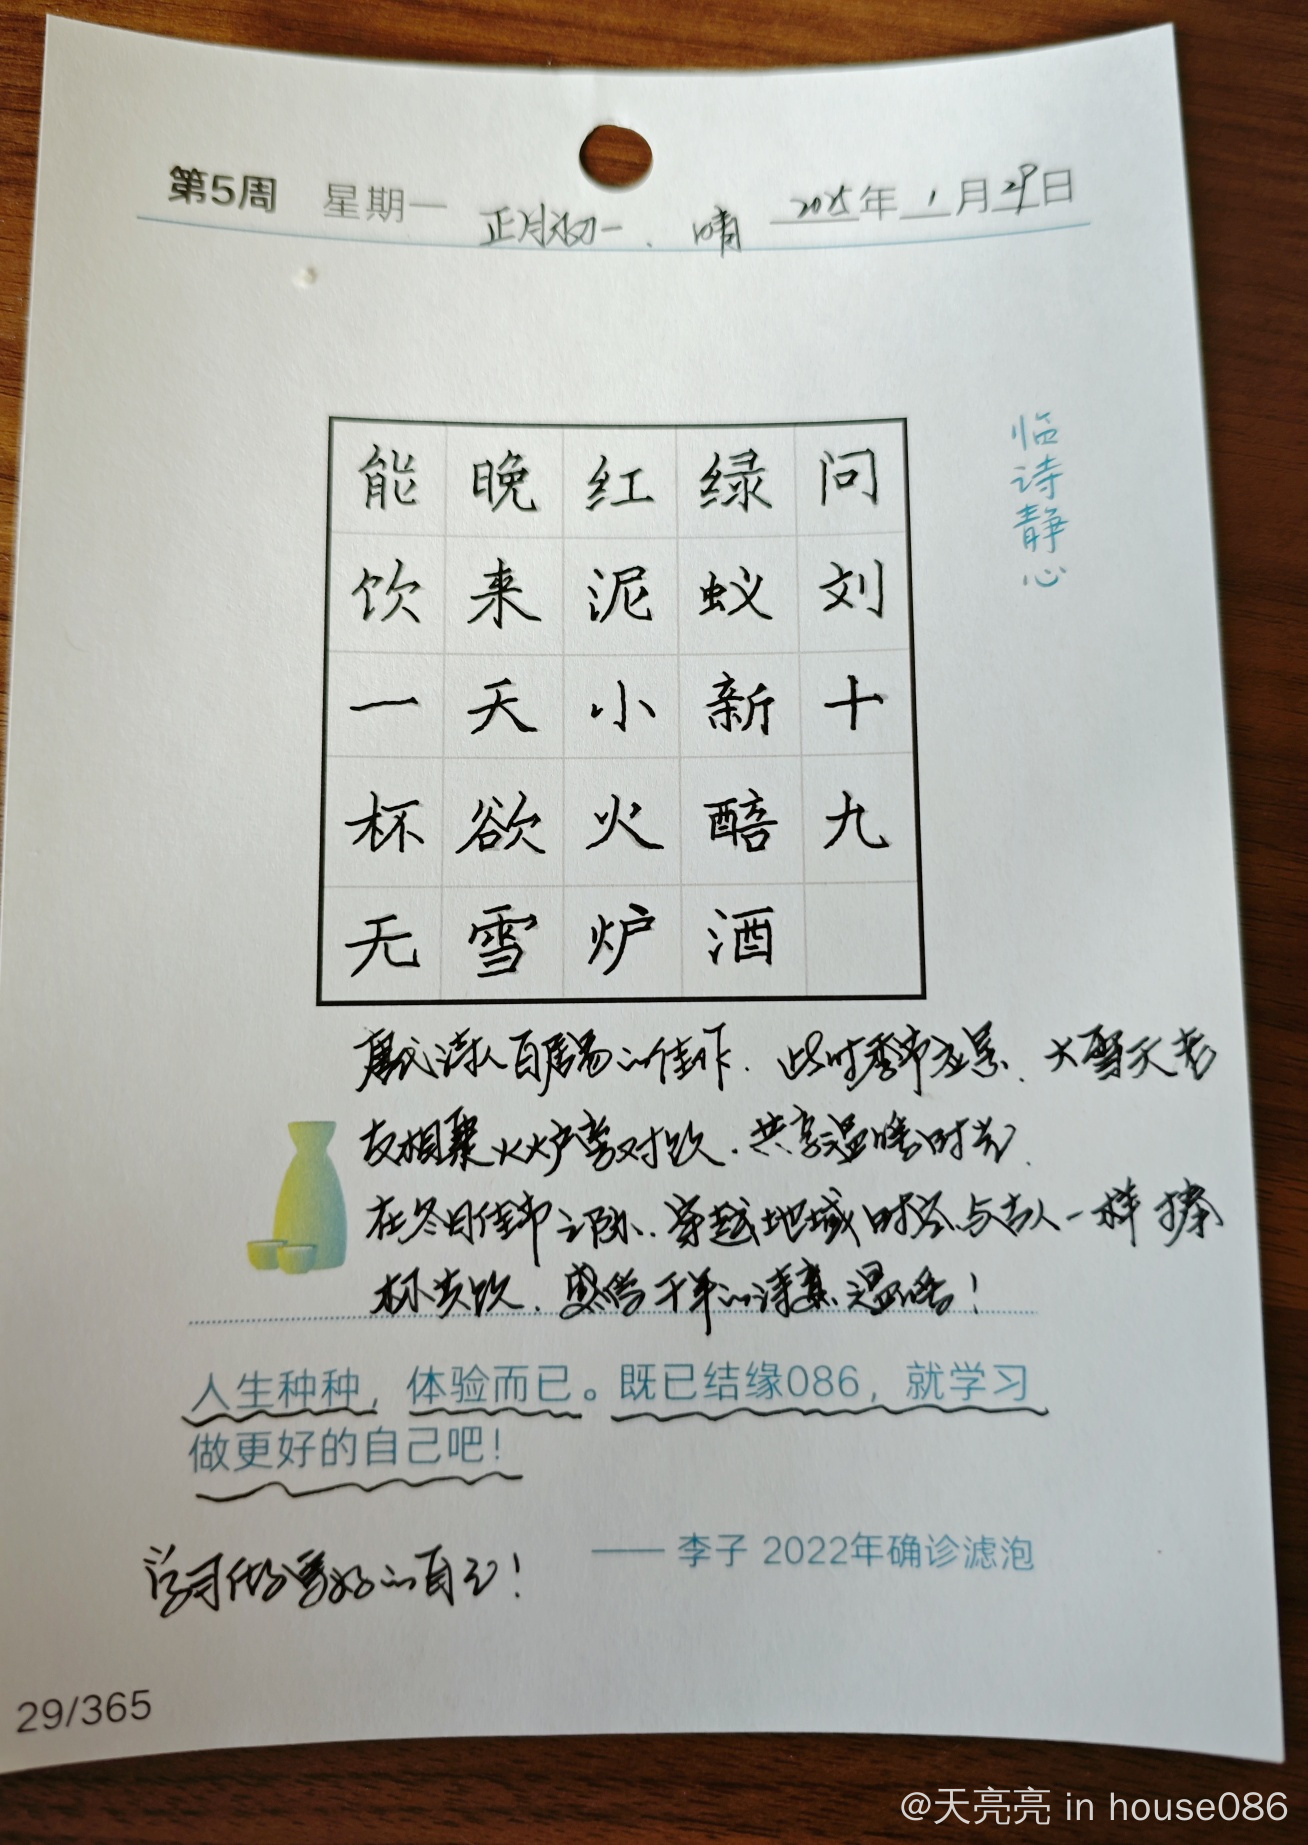 第5周 星期一 正月初一. 晴 2025年1月29日
临诗静心
问刘十九
绿蚁新醅酒
红泥小火炉
晚来天欲雪
能饮一杯无
唐代诗人白居易的佳作. 此时季节应景. 大雪天老
友相聚火炉旁对饮. 共享温暖时光.
在冬日佳节之际. 穿越地域时空与古人一样捧
杯共饮. 千年的诗意温暖!
人生种种，体验而已。既已结缘086，就学习
做更好的自己吧！
—— 李子 2022年确诊滤泡
学习做更好的自己!
29/365
@天亮亮 in house086